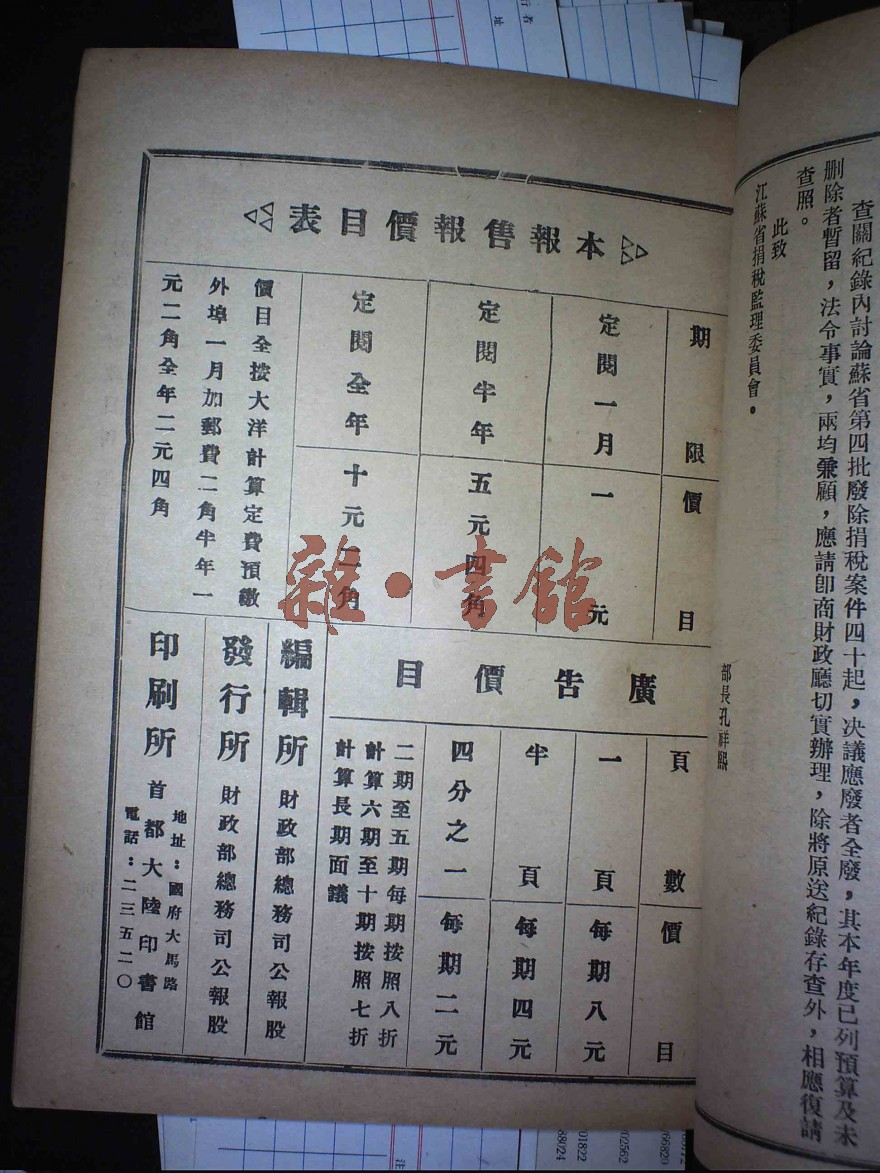 查關紀錄內討論蘇省第四批廢除捐稅案件四十起，决議應廢者全廢，其本年度已列預算及未
删除者暫留，法令事實，兩均兼顧，應請卽商財政廳切實辦理，除將原送紀錄存查外，相應復請
查照。
此致
江蘇省捐稅監理委員會。
部長孔祥熙
本報售報價目表
期限 價目
定閱一月 一元
定閱半年 五元四角
定閱全年 十元二角
價目全按大洋計算定費預繳
外埠一月加郵費二角半年一
元二角全年二元四角
廣告價目
頁數 價目
一頁 每期八元
半頁 每期四元
四分之一 每期二元
二期至五期每期按照八折
計算六期至十期按照七折
計算長期面議
編輯所 財政部總務司公報股
發行所 財政部總務司公報股
印刷所 首都大陸印書館
地址：國府大馬路
電話：二三五二〇
雜·書館
者
址
01822
02562
066820
88024
注